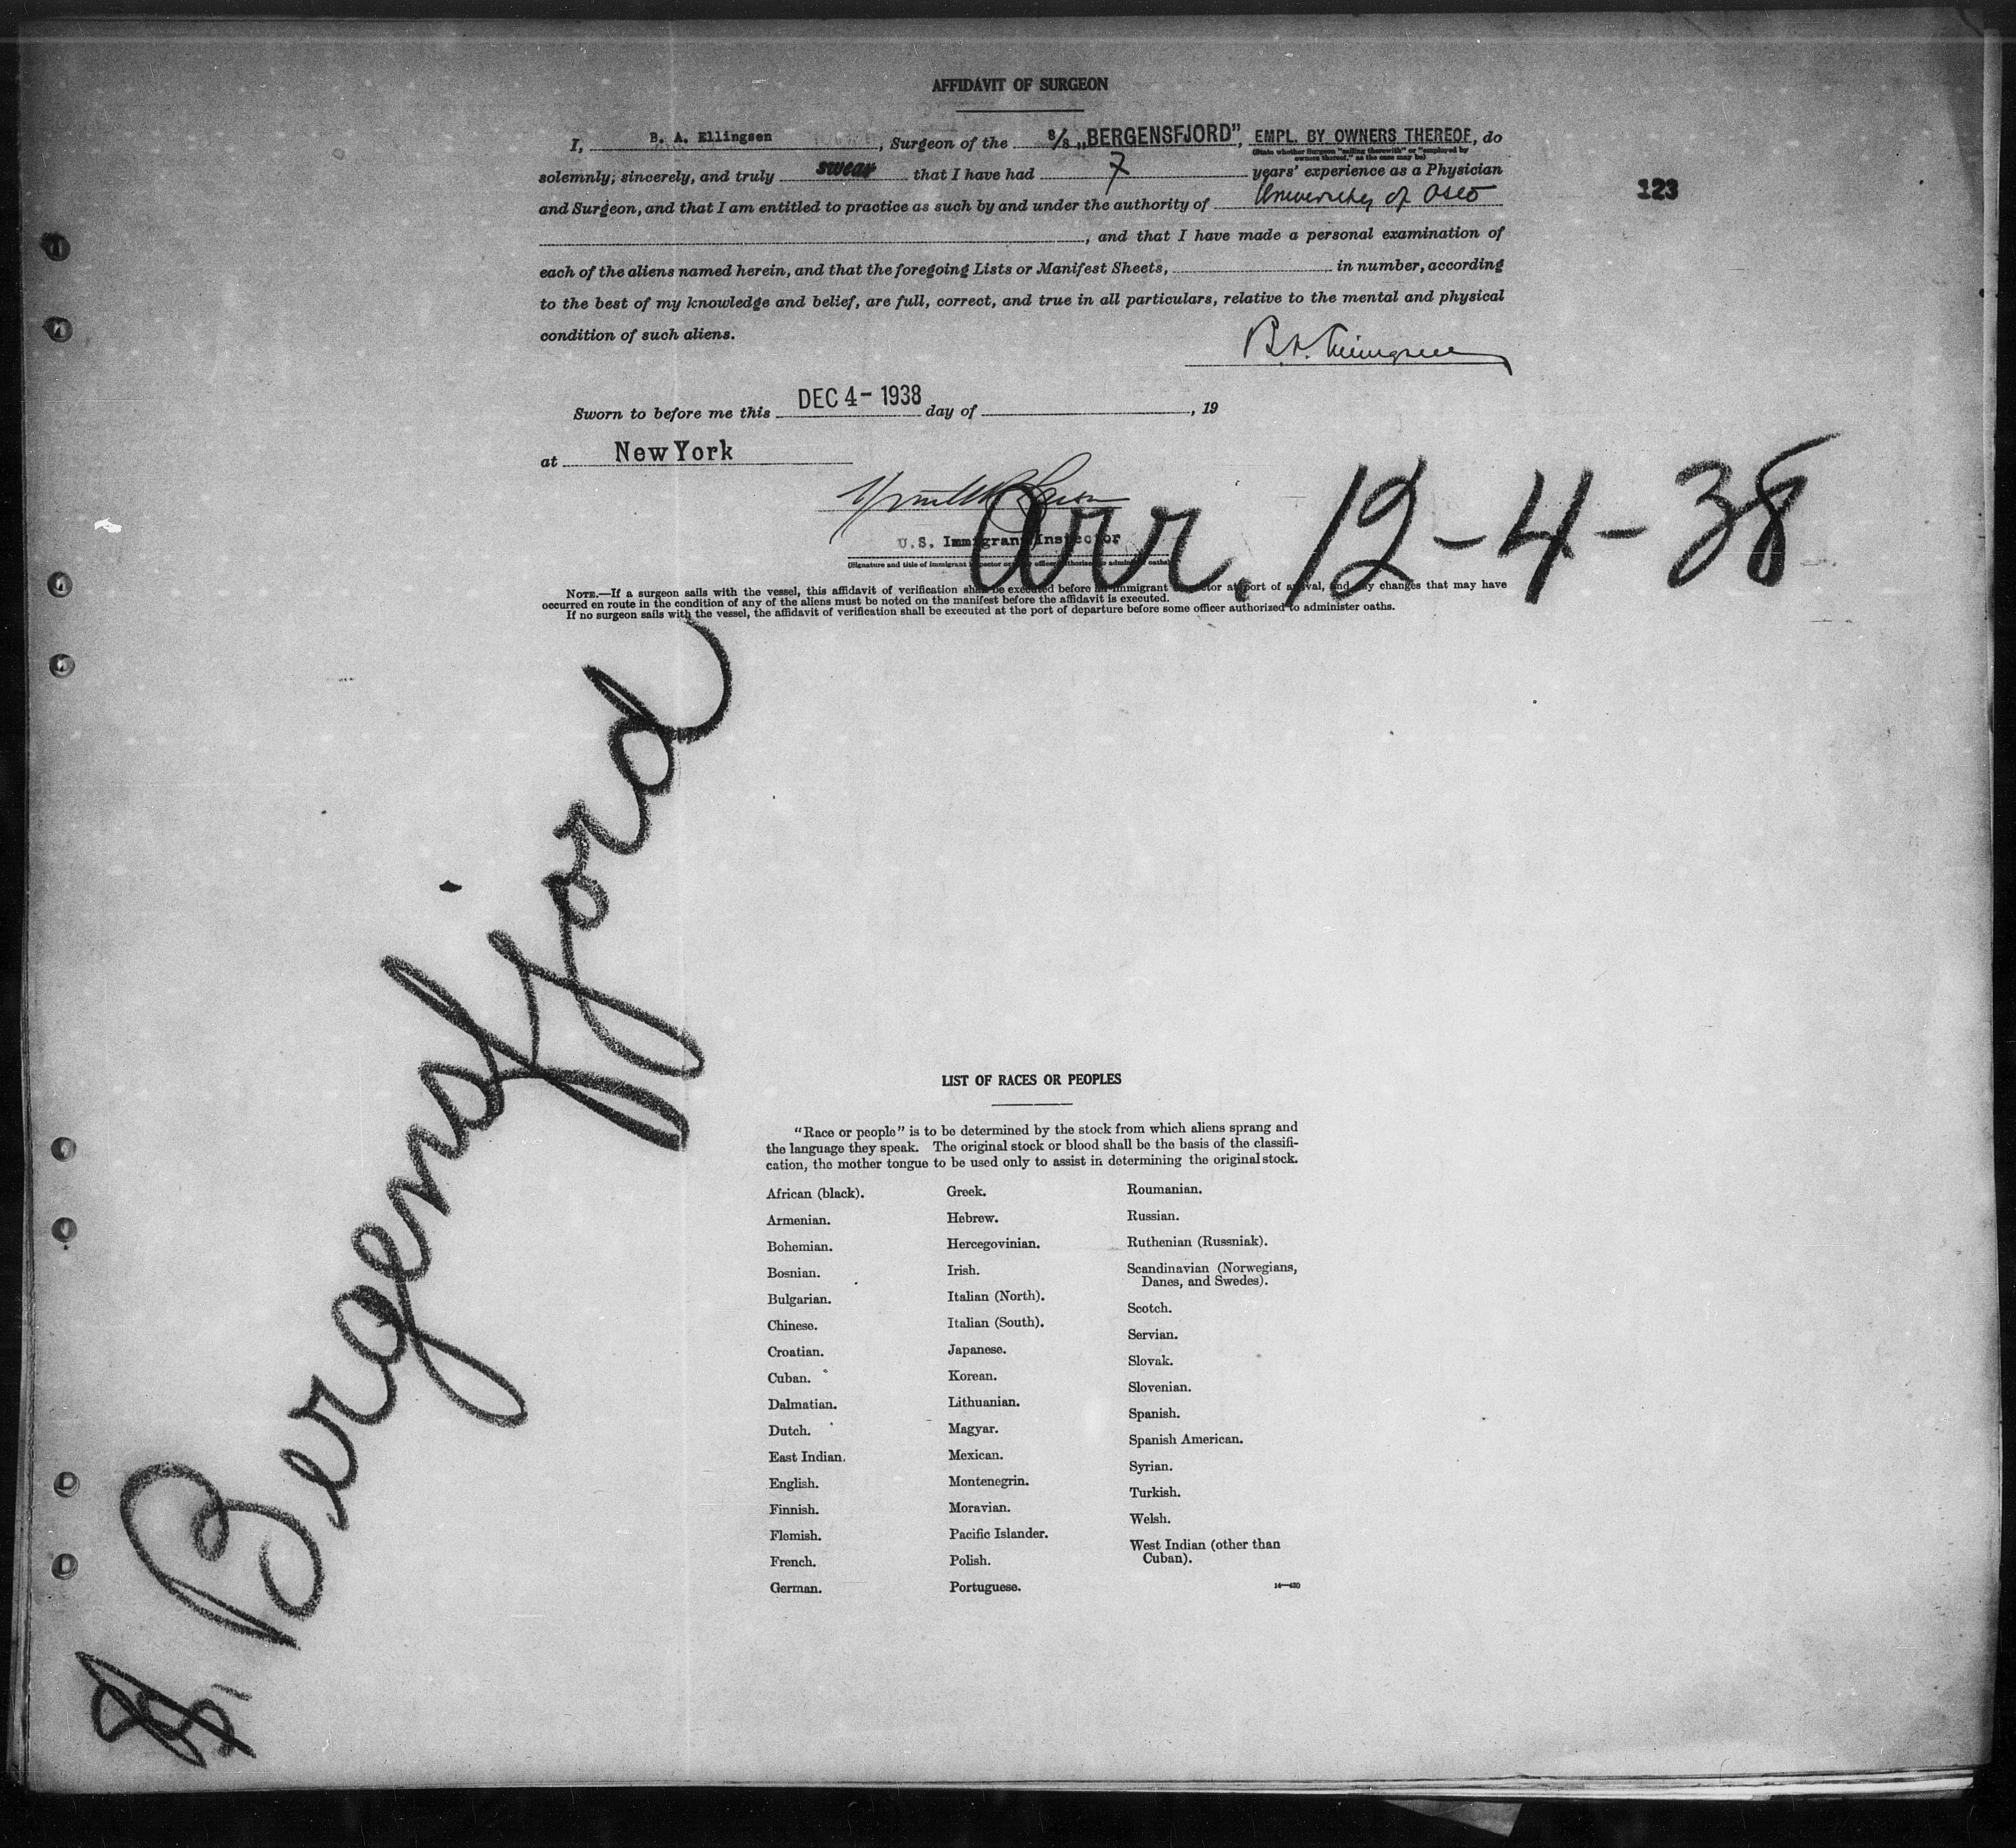 AFFIDAVIT OF SURGEON
I, B. A. Ellingsen, Surgeon of the S/S „BERGENSFJORD”, EMPL. BY OWNERS THEREOF, do
(State whether Surgeon "sailing therewith" or "employed by
owners thereof," as the case may be)
solemnly, sincerely, and truly swear that I have had 7 years' experience as a Physician
123
and Surgeon, and that I am entitled to practice as such by and under the authority of University of Oslo
, and that I have made a personal examination of
each of the aliens named herein, and that the foregoing Lists or Manifest Sheets, in number, according
to the best of my knowledge and belief, are full, correct, and true in all particulars, relative to the mental and physical
condition of such aliens.
B. A. Ellingsen
Sworn to before me this DEC 4- 1938 day of , 19
at New York
arr. 12-4-38
U.S. Immigrant Inspector
(Signature and title of immigrant inspector or other officer authorized to administer oaths)
NOTE.—If a surgeon sails with the vessel, this affidavit of verification shall be executed before an immigrant inspector at port of arrival, and any changes that may have
occurred en route in the condition of any of the aliens must be noted on the manifest before the affidavit is executed.
If no surgeon sails with the vessel, the affidavit of verification shall be executed at the port of departure before some officer authorized to administer oaths.
SS Bergensfjord
LIST OF RACES OR PEOPLES
"Race or people" is to be determined by the stock from which aliens sprang and
the language they speak. The original stock or blood shall be the basis of the classifi-
cation, the mother tongue to be used only to assist in determining the original stock.
African (black).
Armenian.
Bohemian.
Bosnian.
Bulgarian.
Chinese.
Croatian.
Cuban.
Dalmatian.
Dutch.
East Indian.
English.
Finnish.
Flemish.
French.
German.
Greek.
Hebrew.
Hercegovinian.
Irish.
Italian (North).
Italian (South).
Japanese.
Korean.
Lithuanian.
Magyar.
Mexican.
Montenegrin.
Moravian.
Pacific Islander.
Polish.
Portuguese.
Roumanian.
Russian.
Ruthenian (Russniak).
Scandinavian (Norwegians,
Danes, and Swedes).
Scotch.
Servian.
Slovak.
Slovenian.
Spanish.
Spanish American.
Syrian.
Turkish.
Welsh.
West Indian (other than
Cuban).
14—430